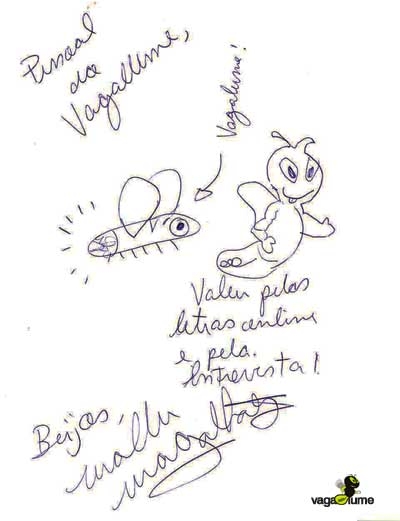 Pessoal
da
Vagalume,
Vagalume!
Valeu pelas
letras online
e pela
Entrevista!
Beijos,
Mallu
Magalhães
vagalume